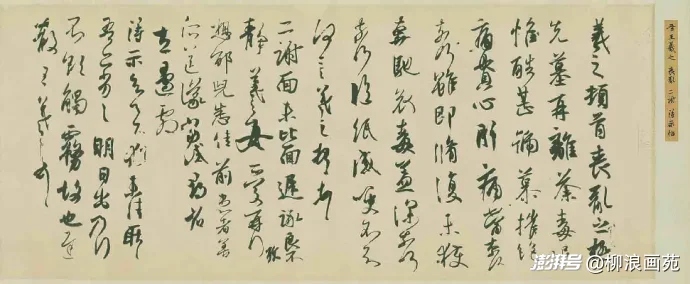 晋王羲之 喪亂 二謝 得示帖
羲之頓首喪亂之極
先墓再離荼毒追
惟酷甚號慕摧絕
痛貫心肝痛當奈何
奈何雖即脩復未獲
奔馳哀毒益深奈何
奈何臨紙感哽不知
何言羲之頓首頓首
二謝面未比面遲詠良不
靜羲之女愛再拜
想邵兒悉佳前患者善
所送議當試尋省
左邊劇
得示知足下猶未佳耿耿
吾亦劣劣明日出乃行
不欲觸霧故也遲
散王羲之頓首
澎湃号@柳浪画苑